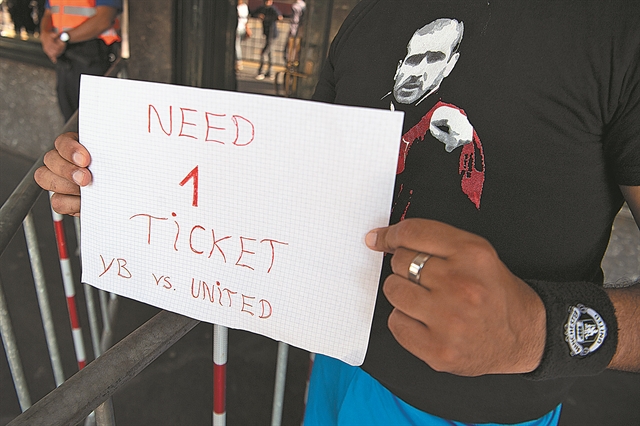 NEED
1
TICKET
YB vs. UNITED